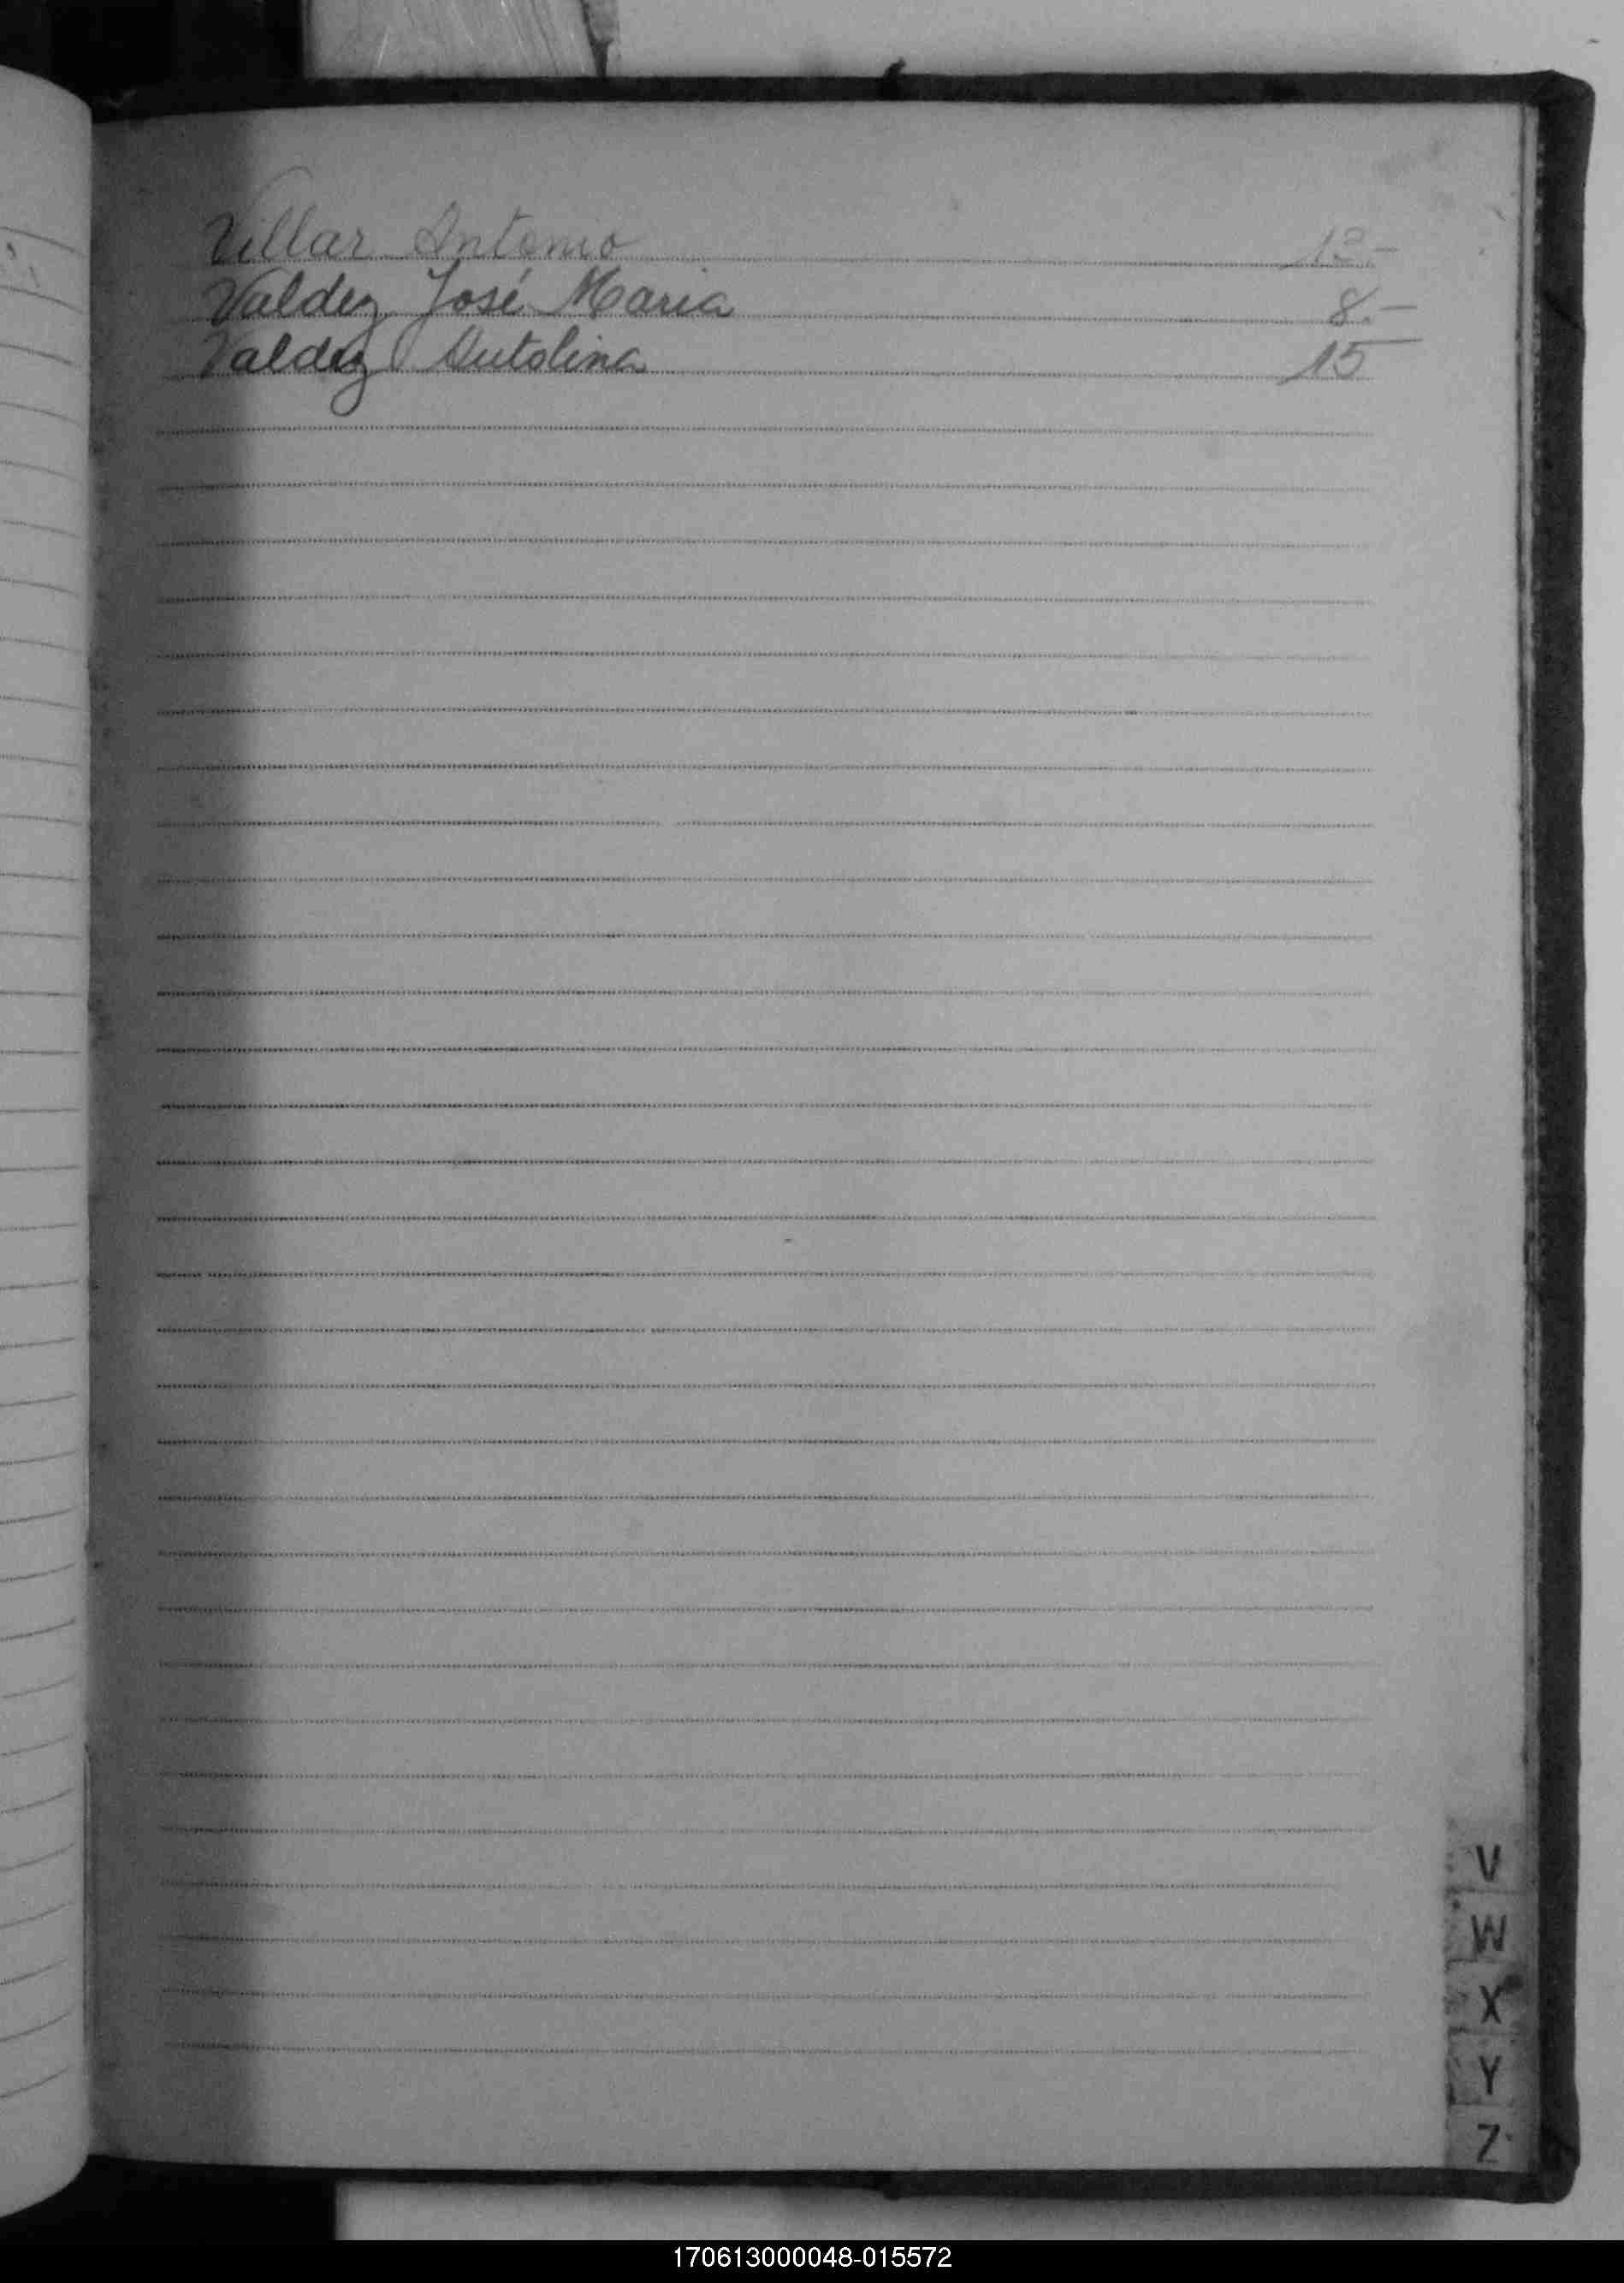 Villar Antonio 12.-
Valdez José Maria 8.-
Valdez Autolina 15
V
W
X
Y
Z
170613000048-015572